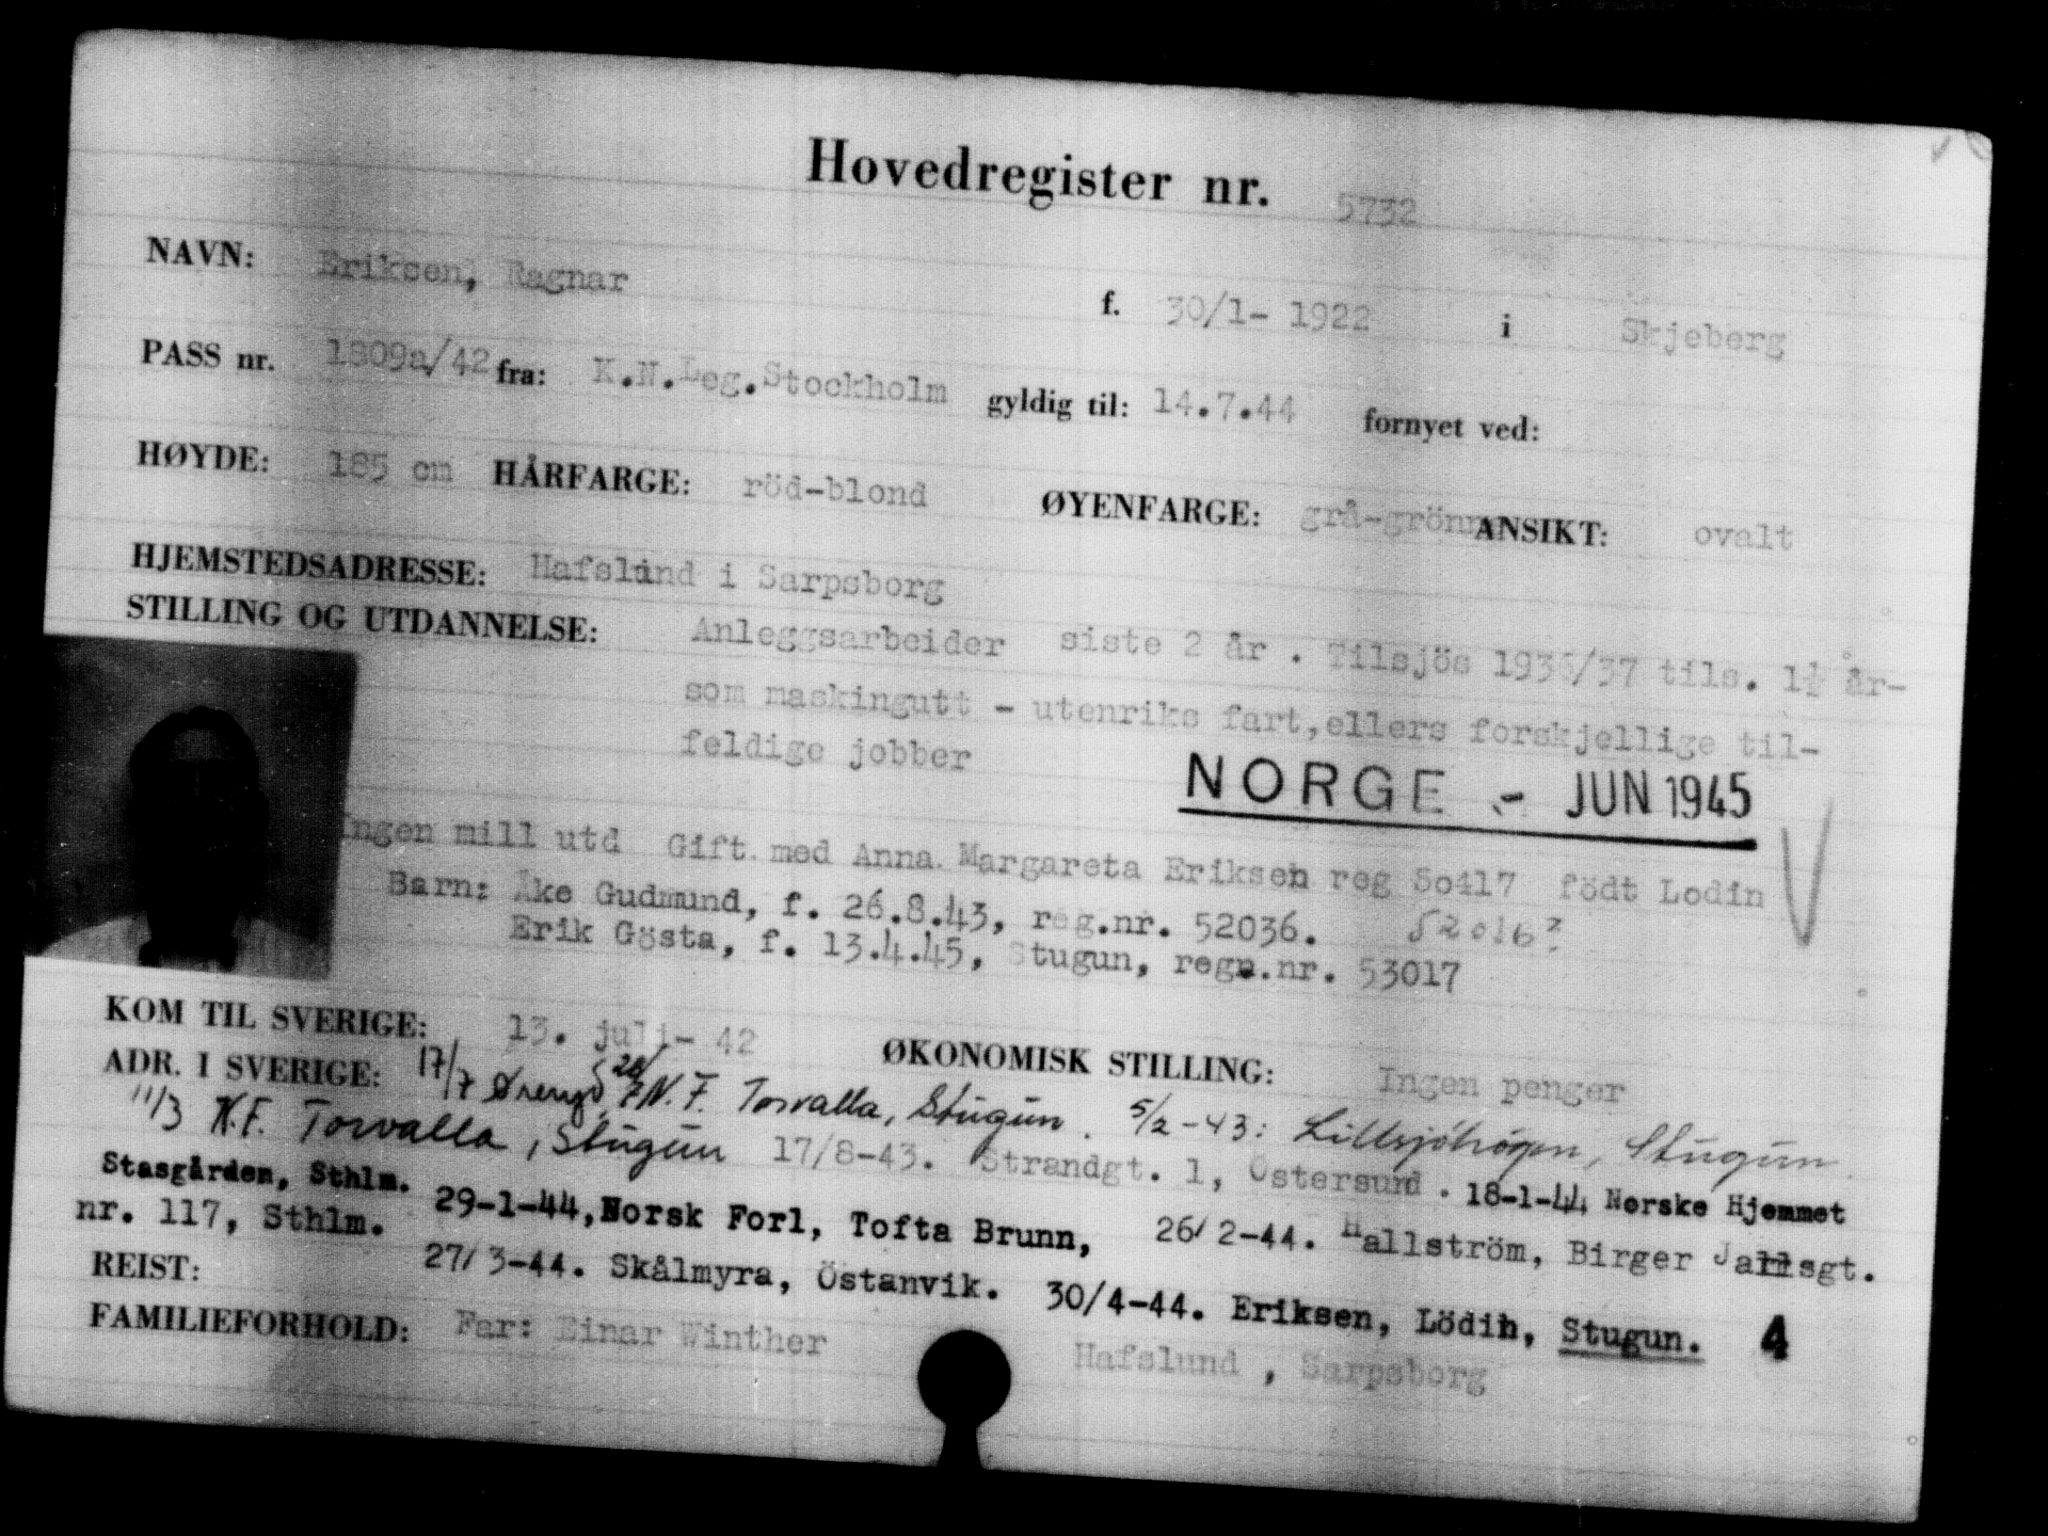 Hovedregister nr. 5732
NAVN: Eriksen, Ragnar f. 30/1- 1922 i Skjeberg
PASS nr. 1809a/42 fra: K.N.Leg.Stockholm gyldig til: 14.7.44 fornyet ved:
HØYDE: 185 cm HÅRFARGE: röd-blond ØYENFARGE: grå-grönn ANSIKT: ovalt
HJEMSTEDSADRESSE: Hafslund i Sarpsborg
STILLING OG UTDANNELSE: Anleggsarbeider siste 2 år . Tilsjös 1936/37 tils. 1½ år-
som maskingutt - utenriks fart,ellers forskjellige til-
feldige jobber
NORGE - JUN 1945
Ingen mill utd Gift med Anna Margareta Eriksen reg 5o417 födt Lodin
Barn: Åke Gudmund, f. 26.8.43, reg.nr. 52036. 52016?
Erik Gösta, f. 13.4.45, Stugun, regn.nr. 53017
KOM TIL SVERIGE: 13. juli- 42 ØKONOMISK STILLING: Ingen penger
ADR. I SVERIGE: 17/7 Öreryd 28/7 N.F. Torvalla, Stugun. 5/2-43: Lillsjöhögen, Stugun
11/3 N.F. Torvalla, Stugun 17/8-43. Strandgt. 1, Östersund . 18-1-44 Norske Hjemmet
Stasgården, Sthlm. 29-1-44,Norsk Forl, Tofta Brunn, 26/2-44. Hallström, Birger Jarlsgt.
nr. 117, Sthlm. 27/3-44. Skålmyra, Östanvik. 30/4-44. Eriksen, Lödin, Stugun. 4
REIST:
FAMILIEFORHOLD: Far: Einar Winther Hafslund , Sarpsborg